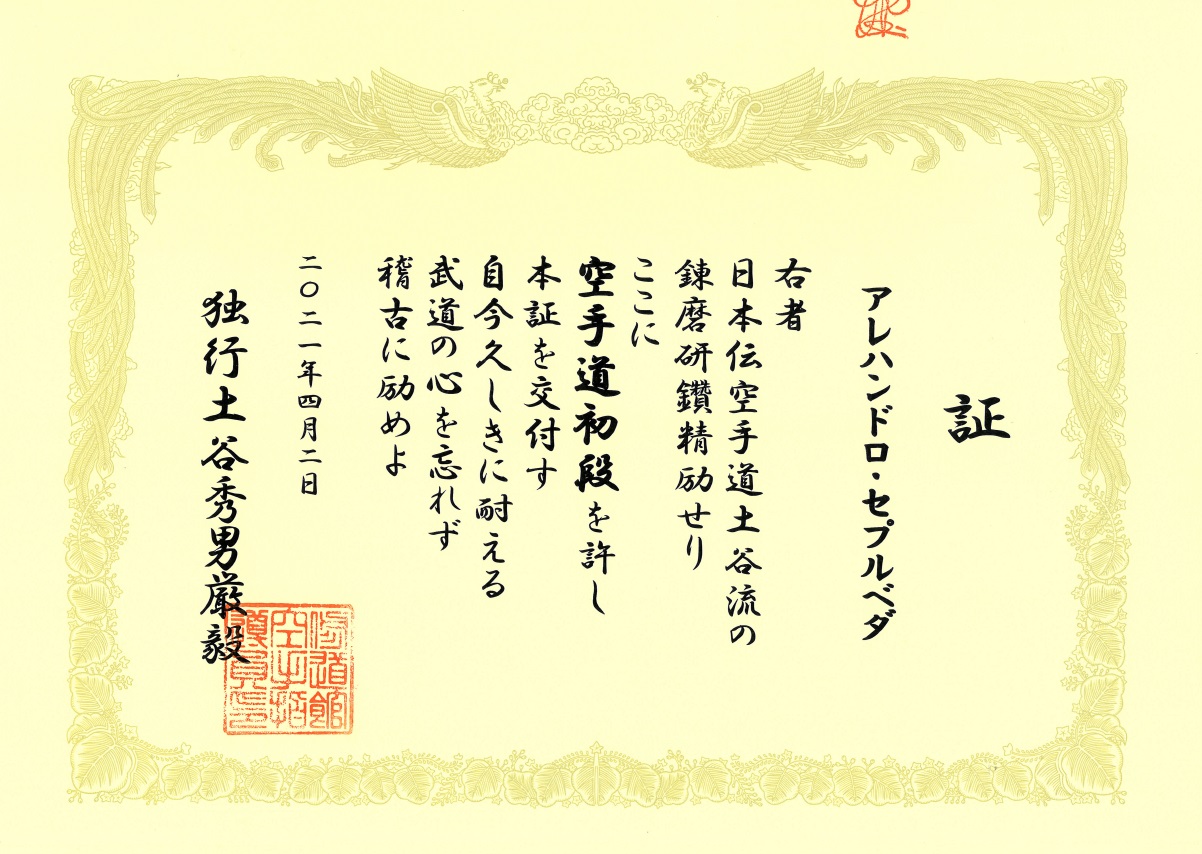 証
アレハンドロ・セプルベダ
右者
日本伝空手道土谷流の
錬磨研鑽精励せり
ここに
空手道初段を許し
本証を交付す
自今久しきに耐える
武道の心を忘れず
稽古に励めよ
二〇二一年四月二日
独行土谷秀男厳毅